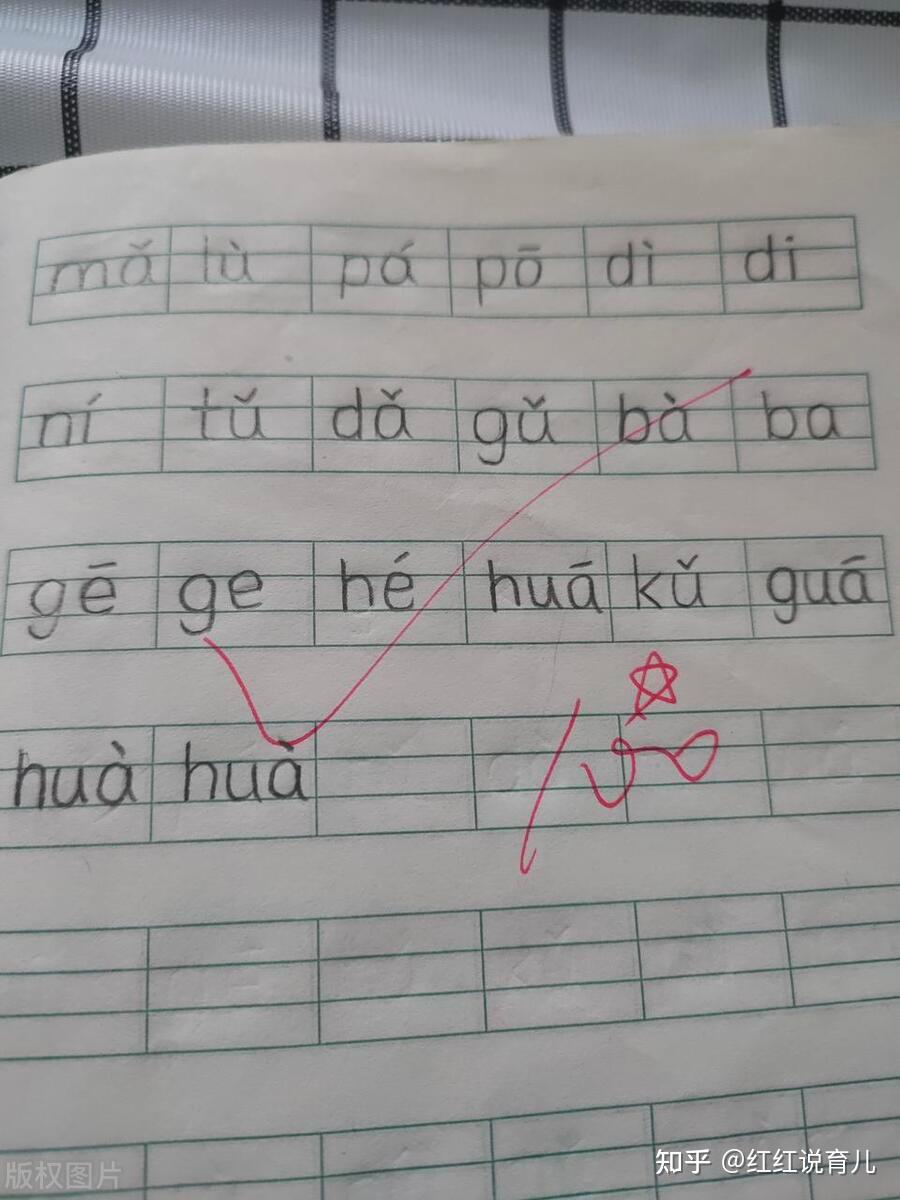 mǎ tù pá pō dì di
ní tǔ dǎ gǔ bà ba
gē ge hé huā kǔ guā
huà huà
100
版权图片
知乎 @红红说育儿